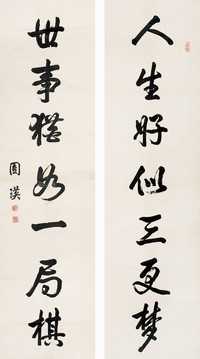 人生好似三更梦
世事猶如一局棋
圓瑛